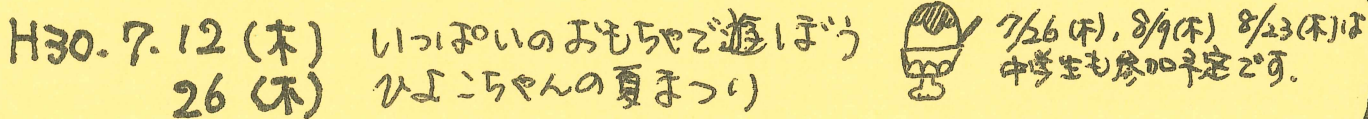 H30.7.12(木) いっぱいのおもちゃで遊ぼう
26(木) ひよこちゃんの夏まつり
7/26(木), 8/9(木) 8/23(木)は
中学生も参加予定です.